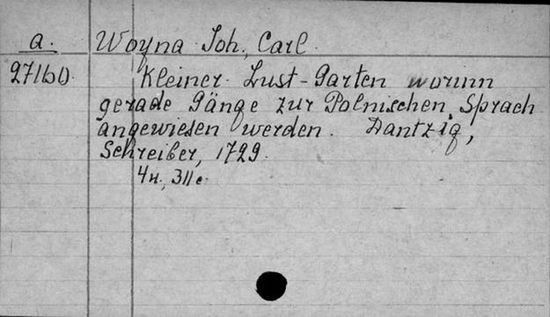 a. Woyna Joh, Carl.
27160 Kleiner Lust-Garten worinn
gerade Gänge zur Polnischen Sprach
angewiesen werden. Dantzig,
Schreiber, 1729.
4н, 311 с